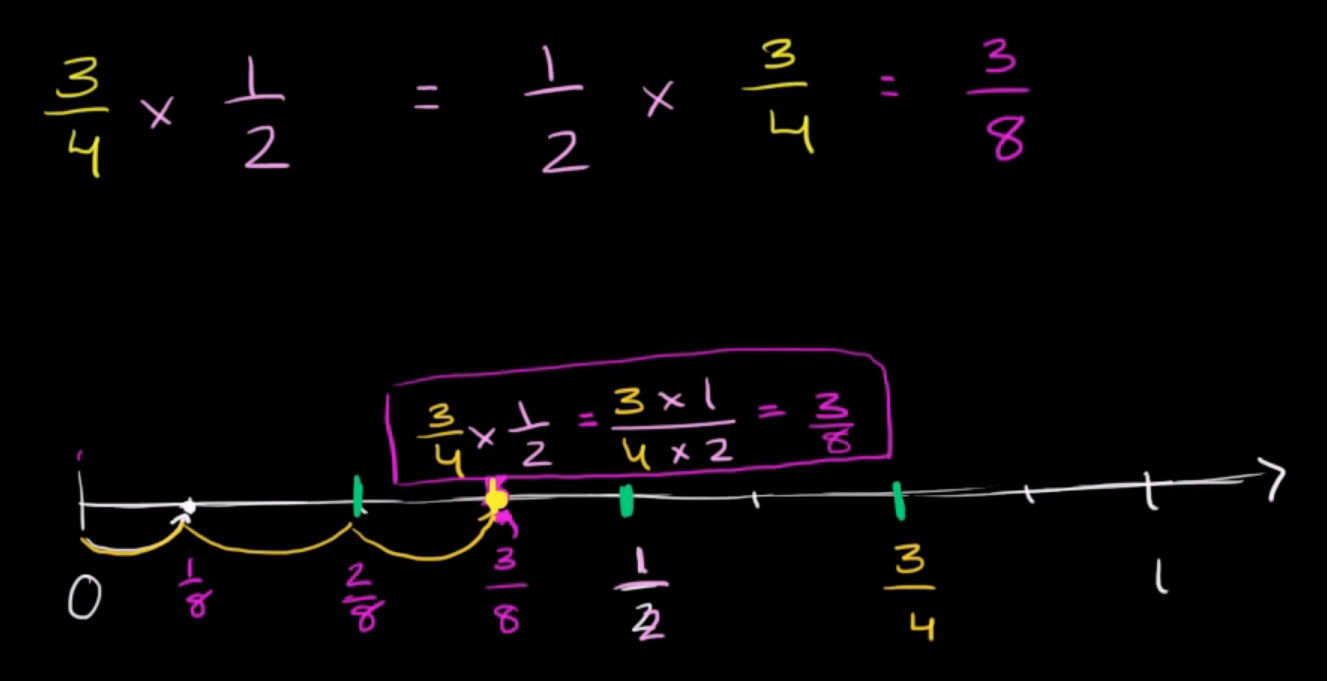 3/4 × 1/2 = 1/2 × 3/4 = 3/8
3/4 × 1/2 = 3 × 1 / 4 × 2 = 3/8
0 1/8 2/8 3/8 1/2 3/4 1